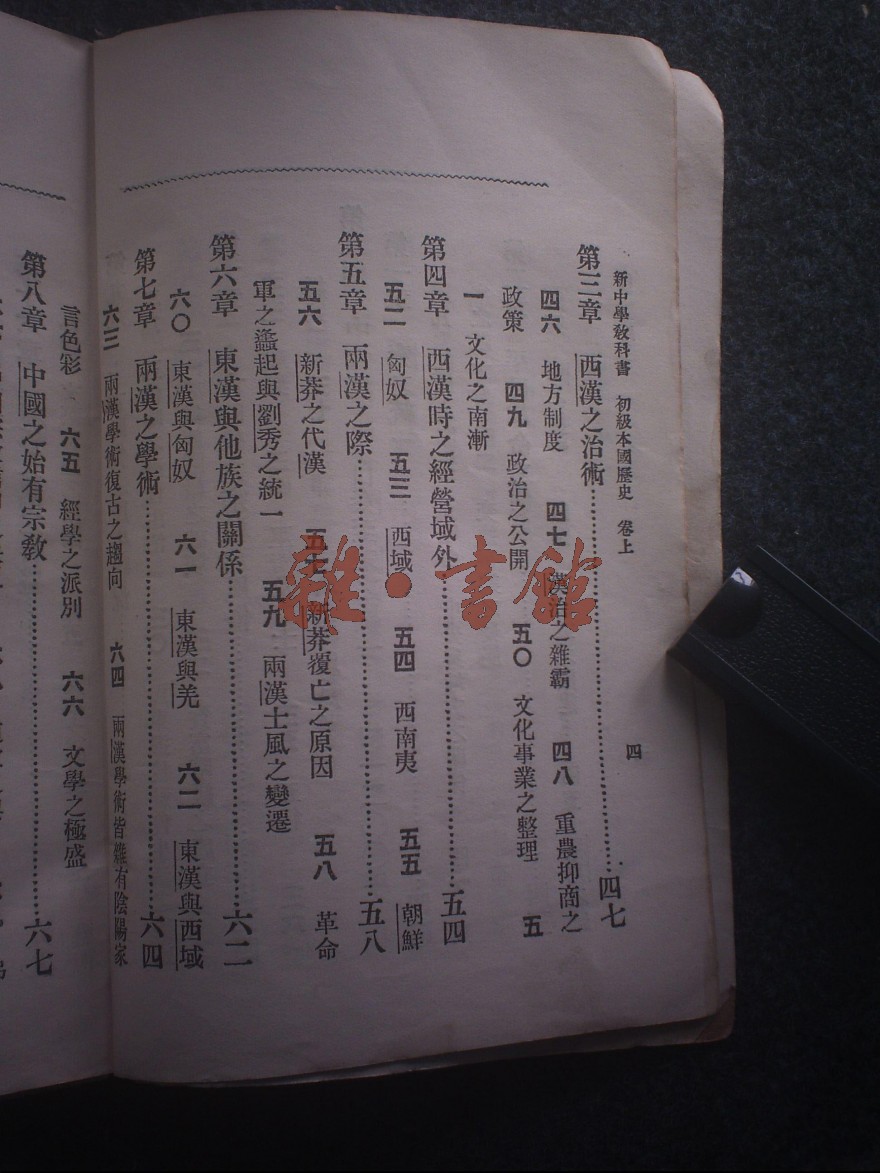 新中學教科書　初級本國歷史　卷上
四
第三章　西漢之治術……………四七
四六　地方制度　四七　漢治之雜霸　四八　重農抑商之
政策　四九　政治之公開　五〇　文化事業之整理　五
一　文化之南漸
第四章　西漢時之經營域外……………五四
五二　匈奴　五三　西域　五四　西南夷　五五　朝鮮
第五章　兩漢之際……………五八
五六　新莽之代漢　五七　新莽覆亡之原因　五八　革命
軍之蠭起與劉秀之統一　五九　兩漢士風之變遷
第六章　東漢與他族之關係……………六二
六〇　東漢與匈奴　六一　東漢與羌　六二　東漢與西域
第七章　兩漢之學術……………六四
六三　兩漢學術復古之趨向　六四　兩漢學術皆雜有陰陽家
言色彩　六五　經學之派別　六六　文學之極盛
第八章　中國之始有宗教……………六七
雜·書館